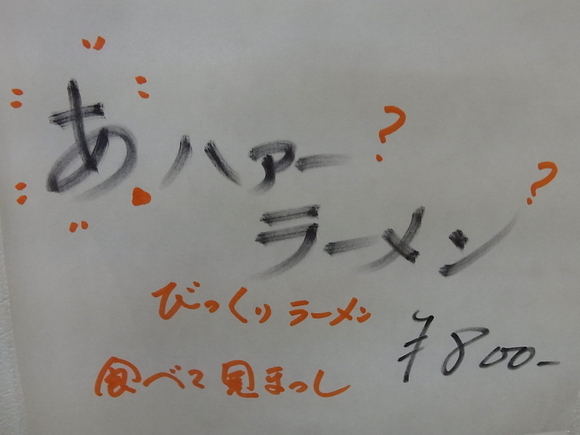 あ ハァー?
ラーメン?
びっくりラーメン
¥800-
食べて見まっし